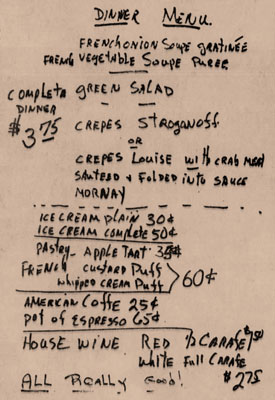 DINNER MENU.
FRENCH ONION SOUPE GRATINÉE
FRENCH VEGETABLE SOUPE PUREE
COMPLETE DINNER $3.75
GREEN SALAD
CREPES STROGANOFF
OR
CREPES LOUISE WITH CRAB MEAT
SAUTEED & FOLDED INTO SAUCE
MORNAY
ICE CREAM PLAIN 30¢
ICE CREAM COMPLETE 50¢
PASTRY - APPLE TART 35¢
FRENCH CUSTARD PUFF
WHIPPED CREAM PUFF 60¢
AMERICAN COFFE 25¢
POT OF ESPRESSO 65¢
HOUSE WINE RED ½ CARAFE $1.50
WHITE FULL CARAFE
$2.75
ALL REALLY GOOD!